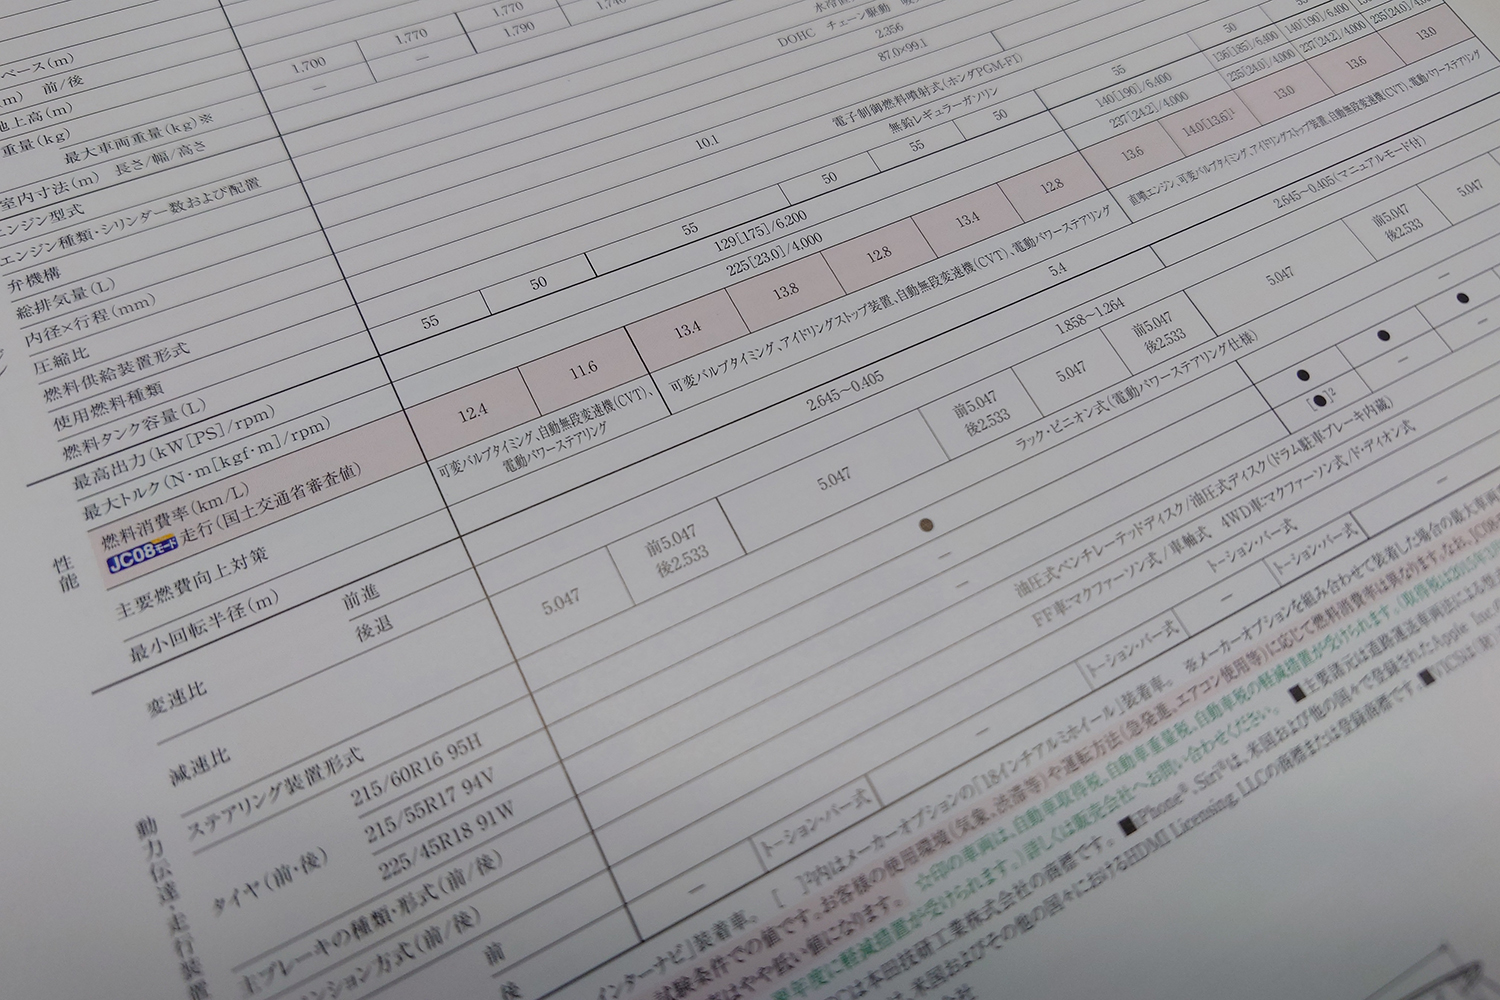 ベース(m)
1,700
1,770
1,770
1,790
—
—
(m) 前/後
地上高(m)
重量(kg)
最大車両重量(kg)※
室内寸法(m) 長さ/幅/高さ
エンジン型式
エンジン種類・シリンダー数および配置
弁機構
DOHC チェーン駆動
総排気量(L)
2.356
内径×行程(mm)
87.0×99.1
圧縮比
10.1
燃料供給装置形式
電子制御燃料噴射式(ホンダPGM-FI)
使用燃料種類
無鉛レギュラーガソリン
燃料タンク容量(L)
55
50
55
50
55
50
55
50
最高出力(kW[PS]/rpm)
129[175]/6,200
140[190]/6,400
136[185]/6,400
140[190]/6,400
最大トルク(N・m[kgf・m]/rpm)
225[23.0]/4,000
237[24.2]/4,000
235[24.0]/4,000
237[24.2]/4,000
235[24.0]/4,000
性能
燃料消費率(km/L)
JC08モード走行(国土交通省審査値)
12.4
11.6
13.4
13.8
12.8
13.4
12.8
13.6
14.0[13.6]¹
13.0
13.6
13.0
主要燃費向上対策
可変バルブタイミング、自動無段変速機(CVT)、
電動パワーステアリング
可変バルブタイミング、アイドリングストップ装置、自動無段変速機(CVT)、電動パワーステアリング
直噴エンジン、可変バルブタイミング、アイドリングストップ装置、自動無段変速機(CVT)、電動パワーステアリング
最小回転半径(m)
5.4
変速比
前進
2.645〜0.405
2.645〜0.405(マニュアルモード付)
後退
1.858〜1.264
減速比
5.047
前5.047
後2.533
5.047
前5.047
後2.533
5.047
前5.047
後2.533
5.047
前5.047
後2.533
5.047
動力伝達・走行装置
ステアリング装置形式
ラック・ピニオン式(電動パワーステアリング仕様)
タイヤ(前・後)
215/60R16 95H
●
—
215/55R17 94V
●
●
●
225/45R18 91W
—
[●]²
—
—
主ブレーキの種類・形式(前/後)
油圧式ベンチレーテッドディスク/油圧式ディスク(ドラム駐車ブレーキ内蔵)
ンション方式(前/後)
FF車:マクファーソン式/車軸式 4WD車:マクファーソン式/ド・ディオン式
前
—
トーション・バー式
—
トーション・バー式
—
トーション・バー式
—
後
トーション・バー式
インターナビ」装着車。 [ ]²内はメーカーオプションの「18インチアルミホイール」装着車。 ※メーカーオプションを組み合わせて装着した場合の最大車両
試験条件での値です。お客様の使用環境(気象、渋滞等)や運転方法(急発進、エアコン使用等)に応じて燃料消費率は異なります。なお、JC08
はやや低い値になります。
☆印の車両は、自動車取得税、自動車重量税、自動車税の軽減措置が受けられます。
翌年度に軽減措置が受けられます。)詳しくは販売会社へお問い合わせください。 ■主要諸元は道路運送車両法による
は本田技研工業株式会社の商標です。 ■iPhone®、Siri®は、米国および他の国々で登録されたApple Inc.
は、米国およびその他の国々におけるHDMI Licensing, LLCの商標または登録商標です。 ■VICSは